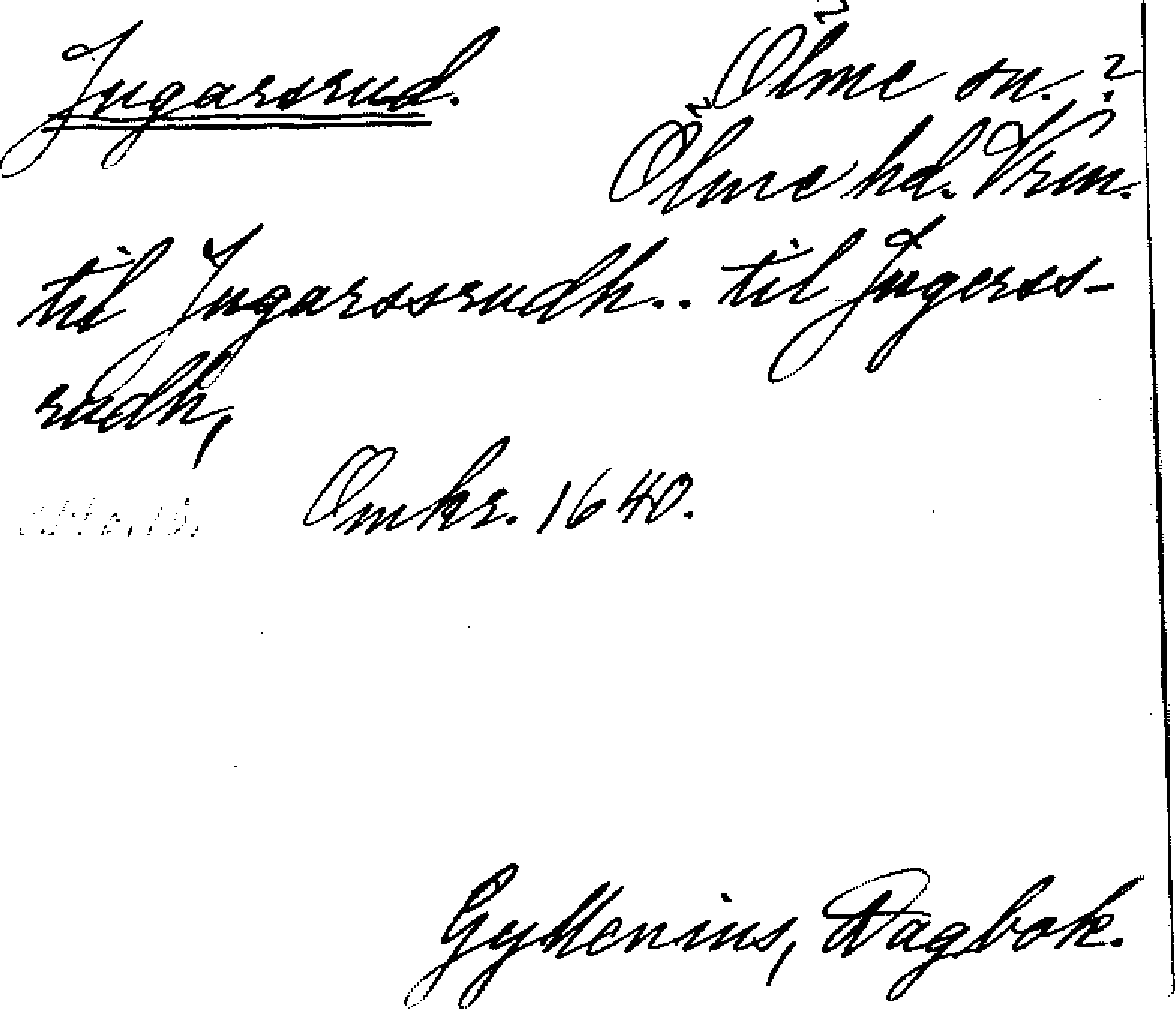 Ingarsrud. Ölme sn.?
Ölme hd. Vrm.
til Ingarssrudh.. til Ingerss-
rudh,
Omkr. 1640.
Gyllenius, Dagbok.